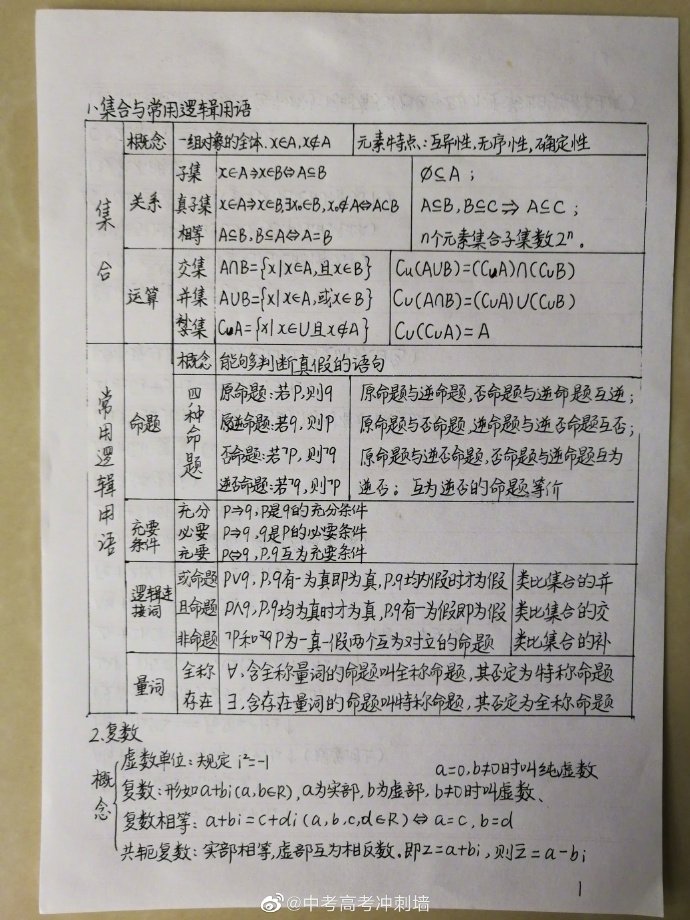 1、集合与常用逻辑用语
集合
概念 一组对象的全体、x∈A, x∉A 元素特点:互异性,无序性,确定性
关系
子集 x∈A⇒x∈B⇔A⊆B ∅⊆A;
真子集 x∈A⇒x∈B,∃x₀∈B,x₀∉A⇔A⊂B A⊆B,B⊆C⇒A⊆C;
相等 A⊆B,B⊆A⇔A=B n个元素集合子集数2ⁿ。
运算
交集 A∩B={x|x∈A,且x∈B} Cu(A∪B)=(CuA)∩(CuB)
并集 A∪B={x|x∈A,或x∈B} Cu(A∩B)=(CuA)∪(CuB)
集 CuA={x|x∈U且x∉A} Cu(CuA)=A
常用逻辑用语
命题
概念 能够判断真假的语句
四种命题
原命题:若P,则q 原命题与逆命题,否命题与逆命题互逆;
逆命题:若q,则P 原命题与否命题,逆命题与逆否命题互否;
否命题:若¬P,则¬q 原命题与逆否命题,否命题与逆命题互为
逆否命题:若¬q,则¬P 逆否;互为逆否的命题等价
充要条件
充分 P⇒q,P是q的充分条件
必要 P⇒q,q是P的必要条件
充要 P⇔q,P,q互为充要条件
逻辑连接词
或命题 P∨q,P,q有一为真即为真,P,q均为假时才为假 类比集合的并
且命题 P∧q,P,q均为真时才为真,P,q有一为假即为假 类比集合的交
非命题 ¬P和P为一真一假两个互为对立的命题 类比集合的补
量词
全称 ∀,含全称量词的命题叫全称命题,其否定为特称命题
存在 ∃,含存在量词的命题叫特称命题,其否定为全称命题
2、复数
概念
虚数单位:规定 i²=-1
a=0,b≠0时叫纯虚数
复数:形如a+bi(a,b∈R),a为实部,b为虚部,b≠0时叫虚数、
复数相等:a+bi=c+di(a,b,c,d∈R)⇔a=c,b=d
共轭复数:实部相等,虚部互为相反数.即z=a+bi,则z̄=a-bi
1
@中考高考冲刺墙